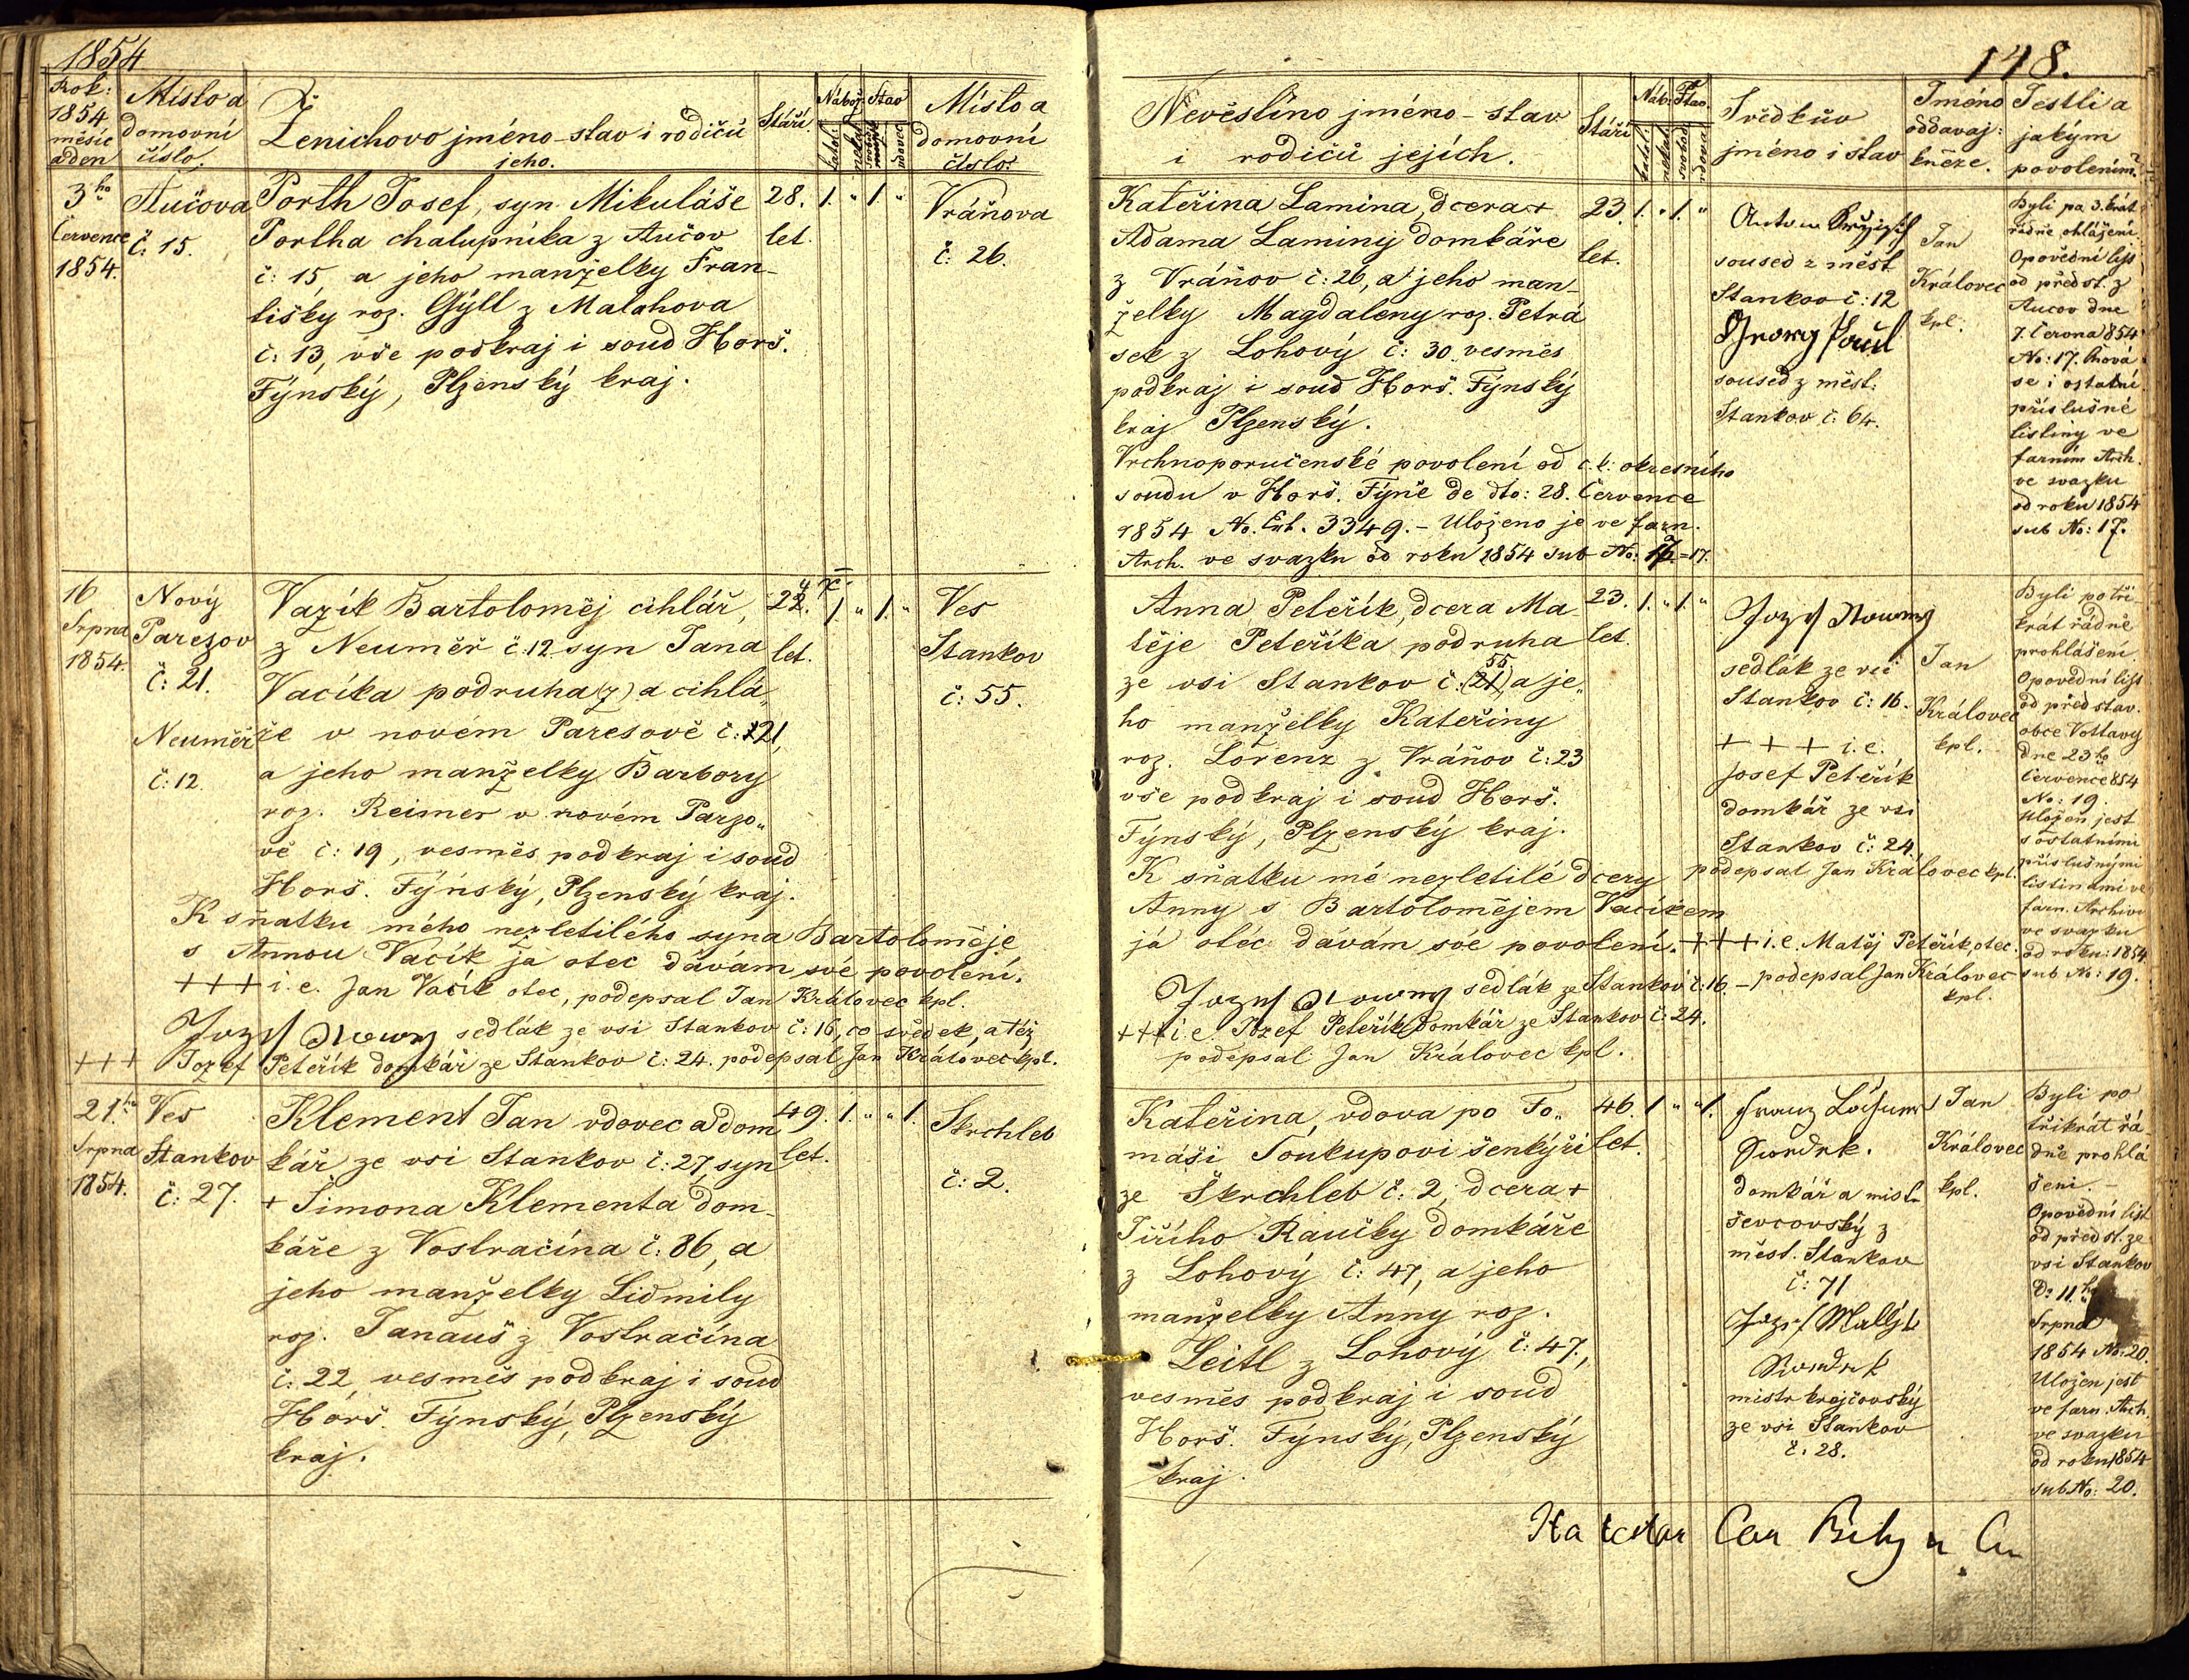 1854
148.
Rok:
1854
měsíc
a den
Místo a
domovní
číslo.
Ženichovo jméno - stav i rodičů
jeho.
Stáří.
Nábož.
Stav
katol:
nekatol
svobod
vdovec
Místo a
domovní
číslo.
Nevěstino jméno - stav
i rodičů jejích.
Stáří
Náb.
Stav.
katol.
nekat.
svobod
vdova
Svědkův
jméno i stav
Jméno
oddavaj:
kněze.
Jestli a
jakým
povolením?
3ho
Července
1854.
Aučova
č. 15.
Porth Josef, syn Mikuláše
Portha chalupníka z Aučov
č: 15, a jeho manželky Fran-
tišky roz. Gÿll z Malahova
č: 13, vše podkraj i soud Horš.
Týnský, Plzenský kraj.
28.
let.
1. " 1. "
Vráňova
č: 26.
Kateřina Lamina, dcera +
Adama Laminy domkáře
z Vráňov č: 26, a jeho man-
želky Magdaleny roz. Petrá
sek z Lohový č: 30. vesměs
podkraj i soud Horš. Týnský
kraj Plzenský.
Vrchnoporučenské povolení od c. k: okresního
soudu v Horš. Týně de dto: 28. Července
1854 No. Exh. 3349. - Uloženo je ve farn.
Arch. ve svazku od roku 1854 sub No: = 17.
23.
let.
1. " 1. "
soused z měst
Stankov č: 12
Georg
soused z měst.
Stankov č. 64.
Jan
Královec
kpl.
Byli po 3. krát
řádně ohlášeni
Opovědní list
od předst. z
Aucov dne
7. Června 854
No: 17. chová
se i ostatní
příslušné
listiny ve
farním Arch.
ve svazku
od roku 1854
sub No: 17.
16
Srpna
1854.
Nový
Parezov
č: 21.
Neuměř
č: 12.
Vazík Bartoloměj cihlář,
z Neuměř č. 12. syn Jana
Vacíka podruha (z) a cihlá„
ře v novém Paresově č: 21,
a jeho manželky Barbory
roz. Reimer v novém Parzo„
vě č: 19, vesměs podkraj i soud
Horš. Týnský, Plzenský kraj.
K sňatku mého nezletilého syna Bartoloměje
s Annou Vacík já otec dávám své povolení.
+++ i. e. Jan Vacík otec, podepsal Jan Královec kpl.
Jozef Nowey sedlák ze vsi Stankov č: 16, co svědek, a též
+++ Jozef Peteřík domkář ze Stankov č: 24. podepsal Jan Královec kpl.
let.
1. " 1. "
Ves
Stankov
č: 55.
Anna Peteřík, dcera Ma
těje Peteříka podruha
55
ze vsi Stankov č. (21) a je„
ho manželky Kateřiny
roz. Lorenz z Vráňov č: 23
vše podkraj i soud Horš.
Týnský, Plzenský kraj.
K sňatku mé nezletilé dcery
Anny s Bartolomějem Vacíkem
já otec dávám své povolení. +++ i. e. Matěj Peteřík, otec.
Jozef Nowey sedlák ze Stankov č: 16. - podepsal Jan Královec
kpl.
+++ i. e. Jozef Peteřík domkář ze Stankov č: 24.
podepsal Jan Královec kpl.
23.
let.
1. " 1. "
Jozef Nowey
sedlák ze vsi
Stankov č: 16.
+ + + i. e.
Josef Peteřík
domkář ze vsi
Stankov č: 24.
podepsal Jan Královec kpl.
Jan
Královec
kpl.
Byli po tři-
krát řádně
prohlášeni.
Opovědní list
od představ.
obce Vottavy
dne 23ho
Července 854
No: 19.
Uložen jest
s ostatními
příslušnými
listinami ve
farn. Archivu
ve svazku
od roku: 1854
sub No: 19.
21.ho
Srpna
1854.
Ves
Stankov
č: 27.
Klement Jan vdovec a dom
kář ze vsi Stankov č: 27, syn
+ Šimona Klementa dom-
káře z Vostračína č: 86, a
jeho manželky Lidmily
roz. Janauš z Vostračína
č: 22, vesměs podkraj i soud
Horš. Týnský, Plzenský
kraj.
49.
let.
1. " " 1.
Skrchleb
č: 2.
Kateřina, vdova po To„
máši Toukupovi šenkýři
ze Škrchleb č: 2, dcera +
Jiřího Raučky domkáře
z Lohový č: 47, a jeho
manželky Anny roz.
Leitl z Lohový č: 47.,
vesměs podkraj i soud
Horš. Týnský, Plzenský
kraj.
46.
let.
1 " " 1.
Franz
domkář a mist.
ševcovský z
měst. Stankov
č: 71
Jozef
mistr krejčovský
ze vsi Stankov
č. 28.
Jan
Královec
kpl.
Byli po
třikrát řá
dně prohlá
šeni. -
Opovědní list
od předst. ze
vsi Stankov
D: 11.ho
Srpna
1854 No: 20.
Uložen jest
ve farn. Arch.
ve svazku
od roku 1854
sub No: 20.